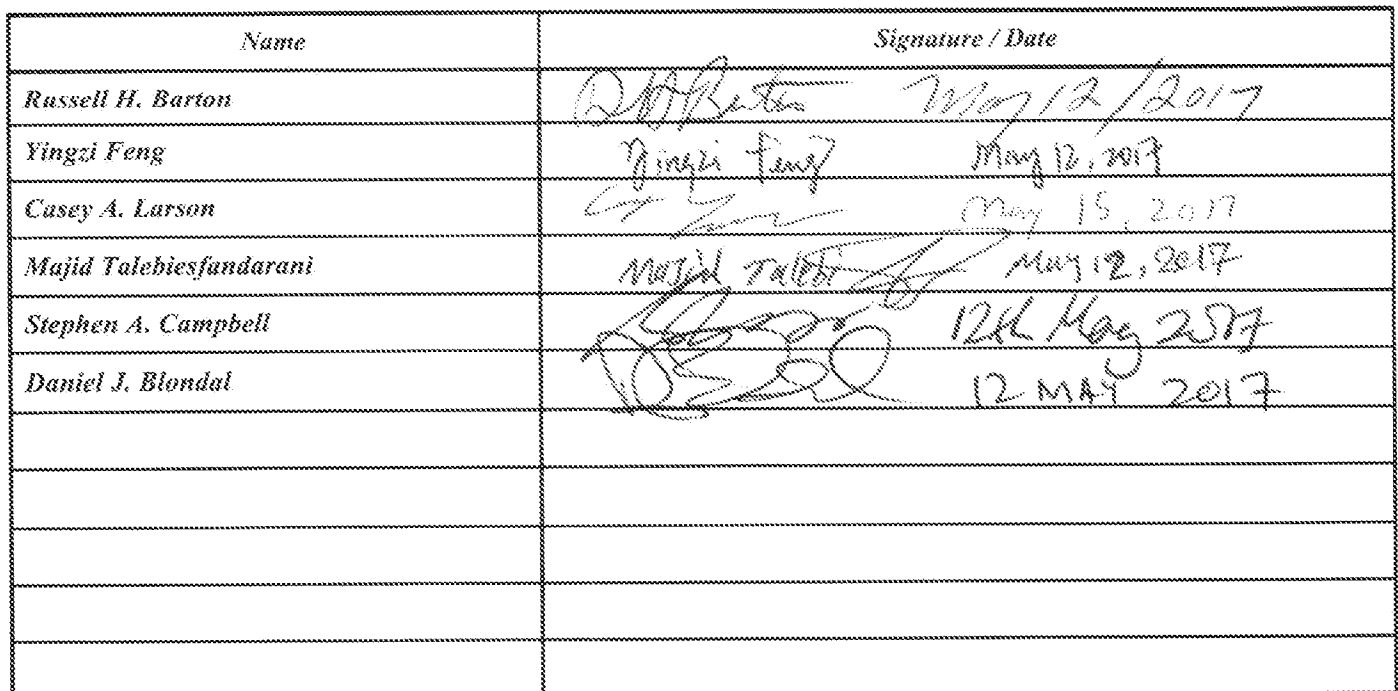 Name Signature / Date
Russell H. Barton May 12/2017
Yingzi Feng Yingzi Feng May 12, 2017
Casey A. Larson May 15, 2017
Majid Talebiesfandarani Majid Talebi May 12, 2017
Stephen A. Campbell 12th May 2017
Daniel J. Blondal 12 MAY 2017